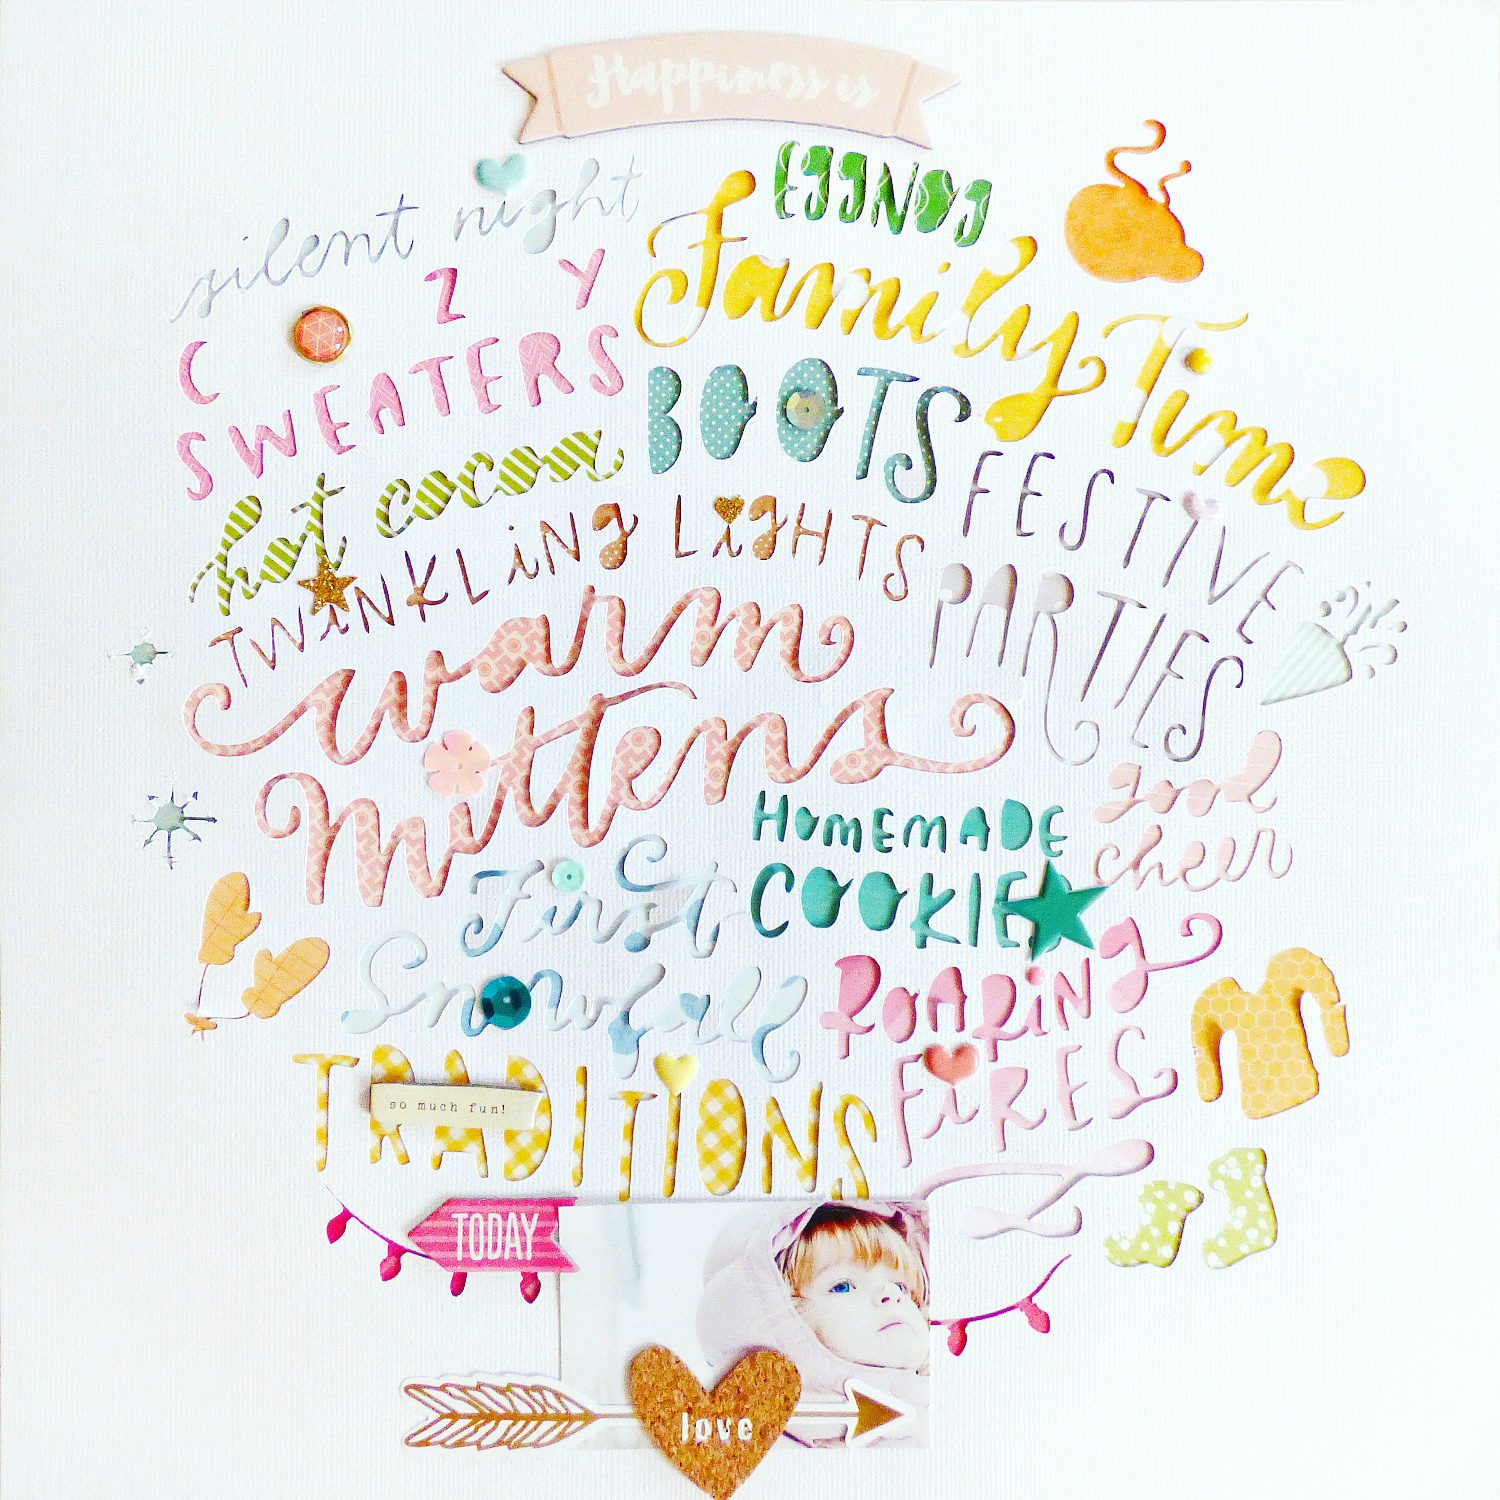 Happiness is
silent night
EggNog
Family Time
C Z Y
SWEATERS
BOOTS
hot cocoa
FESTiVE
PARTIES
TWiNKLiNg LigHTS
warm
mittens
good
cheer
HOmEmADE
COOKIE
First
Snowfall
ROARiNg
FiRES
TRADITIONS
so much fun!
TODAY
love